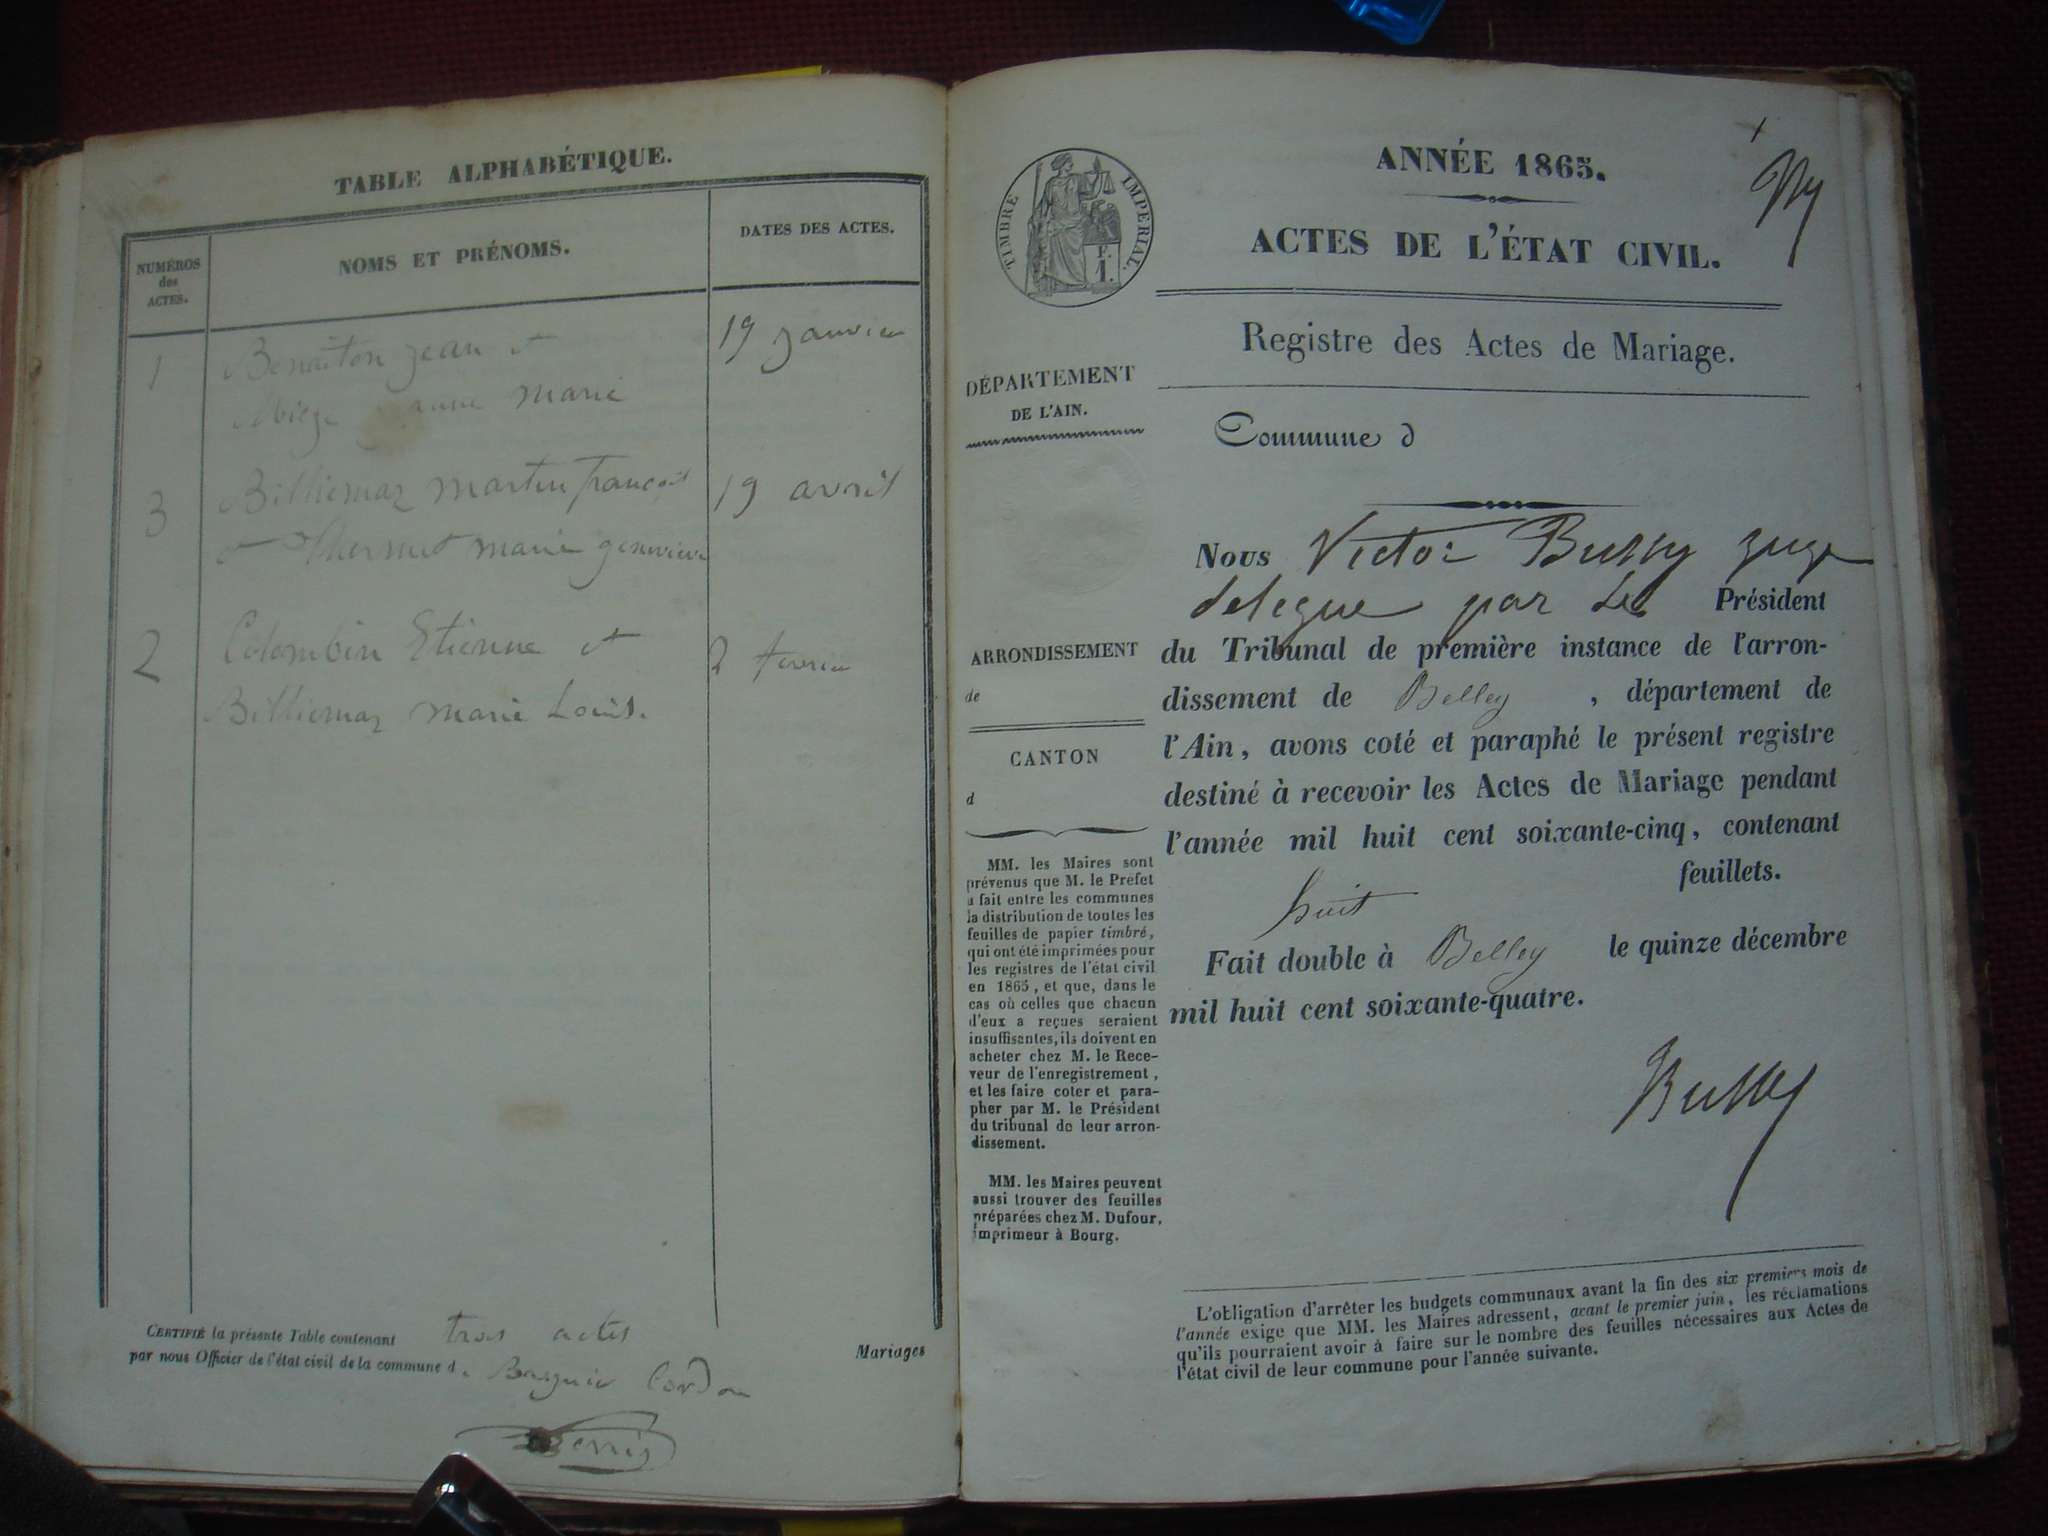 TABLE ALPHABÉTIQUE.
NUMÉROS
des
ACTES.
NOMS ET PRÉNOMS.
DATES DES ACTES.
1 Benaiton jean et 19 janvier
anne marie
3 Billiemaz martin françois 19 avril
et marie genevieve
2 Colombin Etienne et 2 fevrier
Billiemaz marie Louis.
CERTIFIÉ la présente Table contenant trois actes Mariages
par nous Officier de l'état civil de la commune d. Bregnier Cordon
ANNÉE 1865.
ACTES DE L'ÉTAT CIVIL.
TIMBRE IMPERIAL.
F.
1.
Registre des Actes de Mariage.
DÉPARTEMENT
DE L'AIN.
Commune d
ARRONDISSEMENT
de
CANTON
d
MM. les Maires sont
prévenus que M. le Prefet
a fait entre les communes
la distribution de toutes les
feuilles de papier timbré,
qui ont été imprimées pour
les registres de l'état civil
en 1865, et que, dans le
cas où celles que chacun
d'eux a reçues seraient
insuffisantes, ils doivent en
acheter chez M. le Rece-
veur de l'enregistrement,
et les faire coter et para-
pher par M. le Président
du tribunal de leur arron-
dissement.
MM. les Maires peuvent
aussi trouver des feuilles
préparées chez M. Dufour,
imprimeur à Bourg.
Nous Victor Bussy juge
delegue par Le Président
du Tribunal de première instance de l'arron-
dissement de Belley , département de
l'Ain, avons coté et paraphé le présent registre
destiné à recevoir les Actes de Mariage pendant
l'année mil huit cent soixante-cinq, contenant
huit feuillets.
Fait double à Belley le quinze décembre
mil huit cent soixante-quatre.
Bussy
L'obligation d'arrêter les budgets communaux avant la fin des six premiers mois de
l'année exige que MM. les Maires adressent, avant le premier juin, les réclamations
qu'ils pourraient avoir à faire sur le nombre des feuilles nécessaires aux Actes de
l'état civil de leur commune pour l'année suivante.